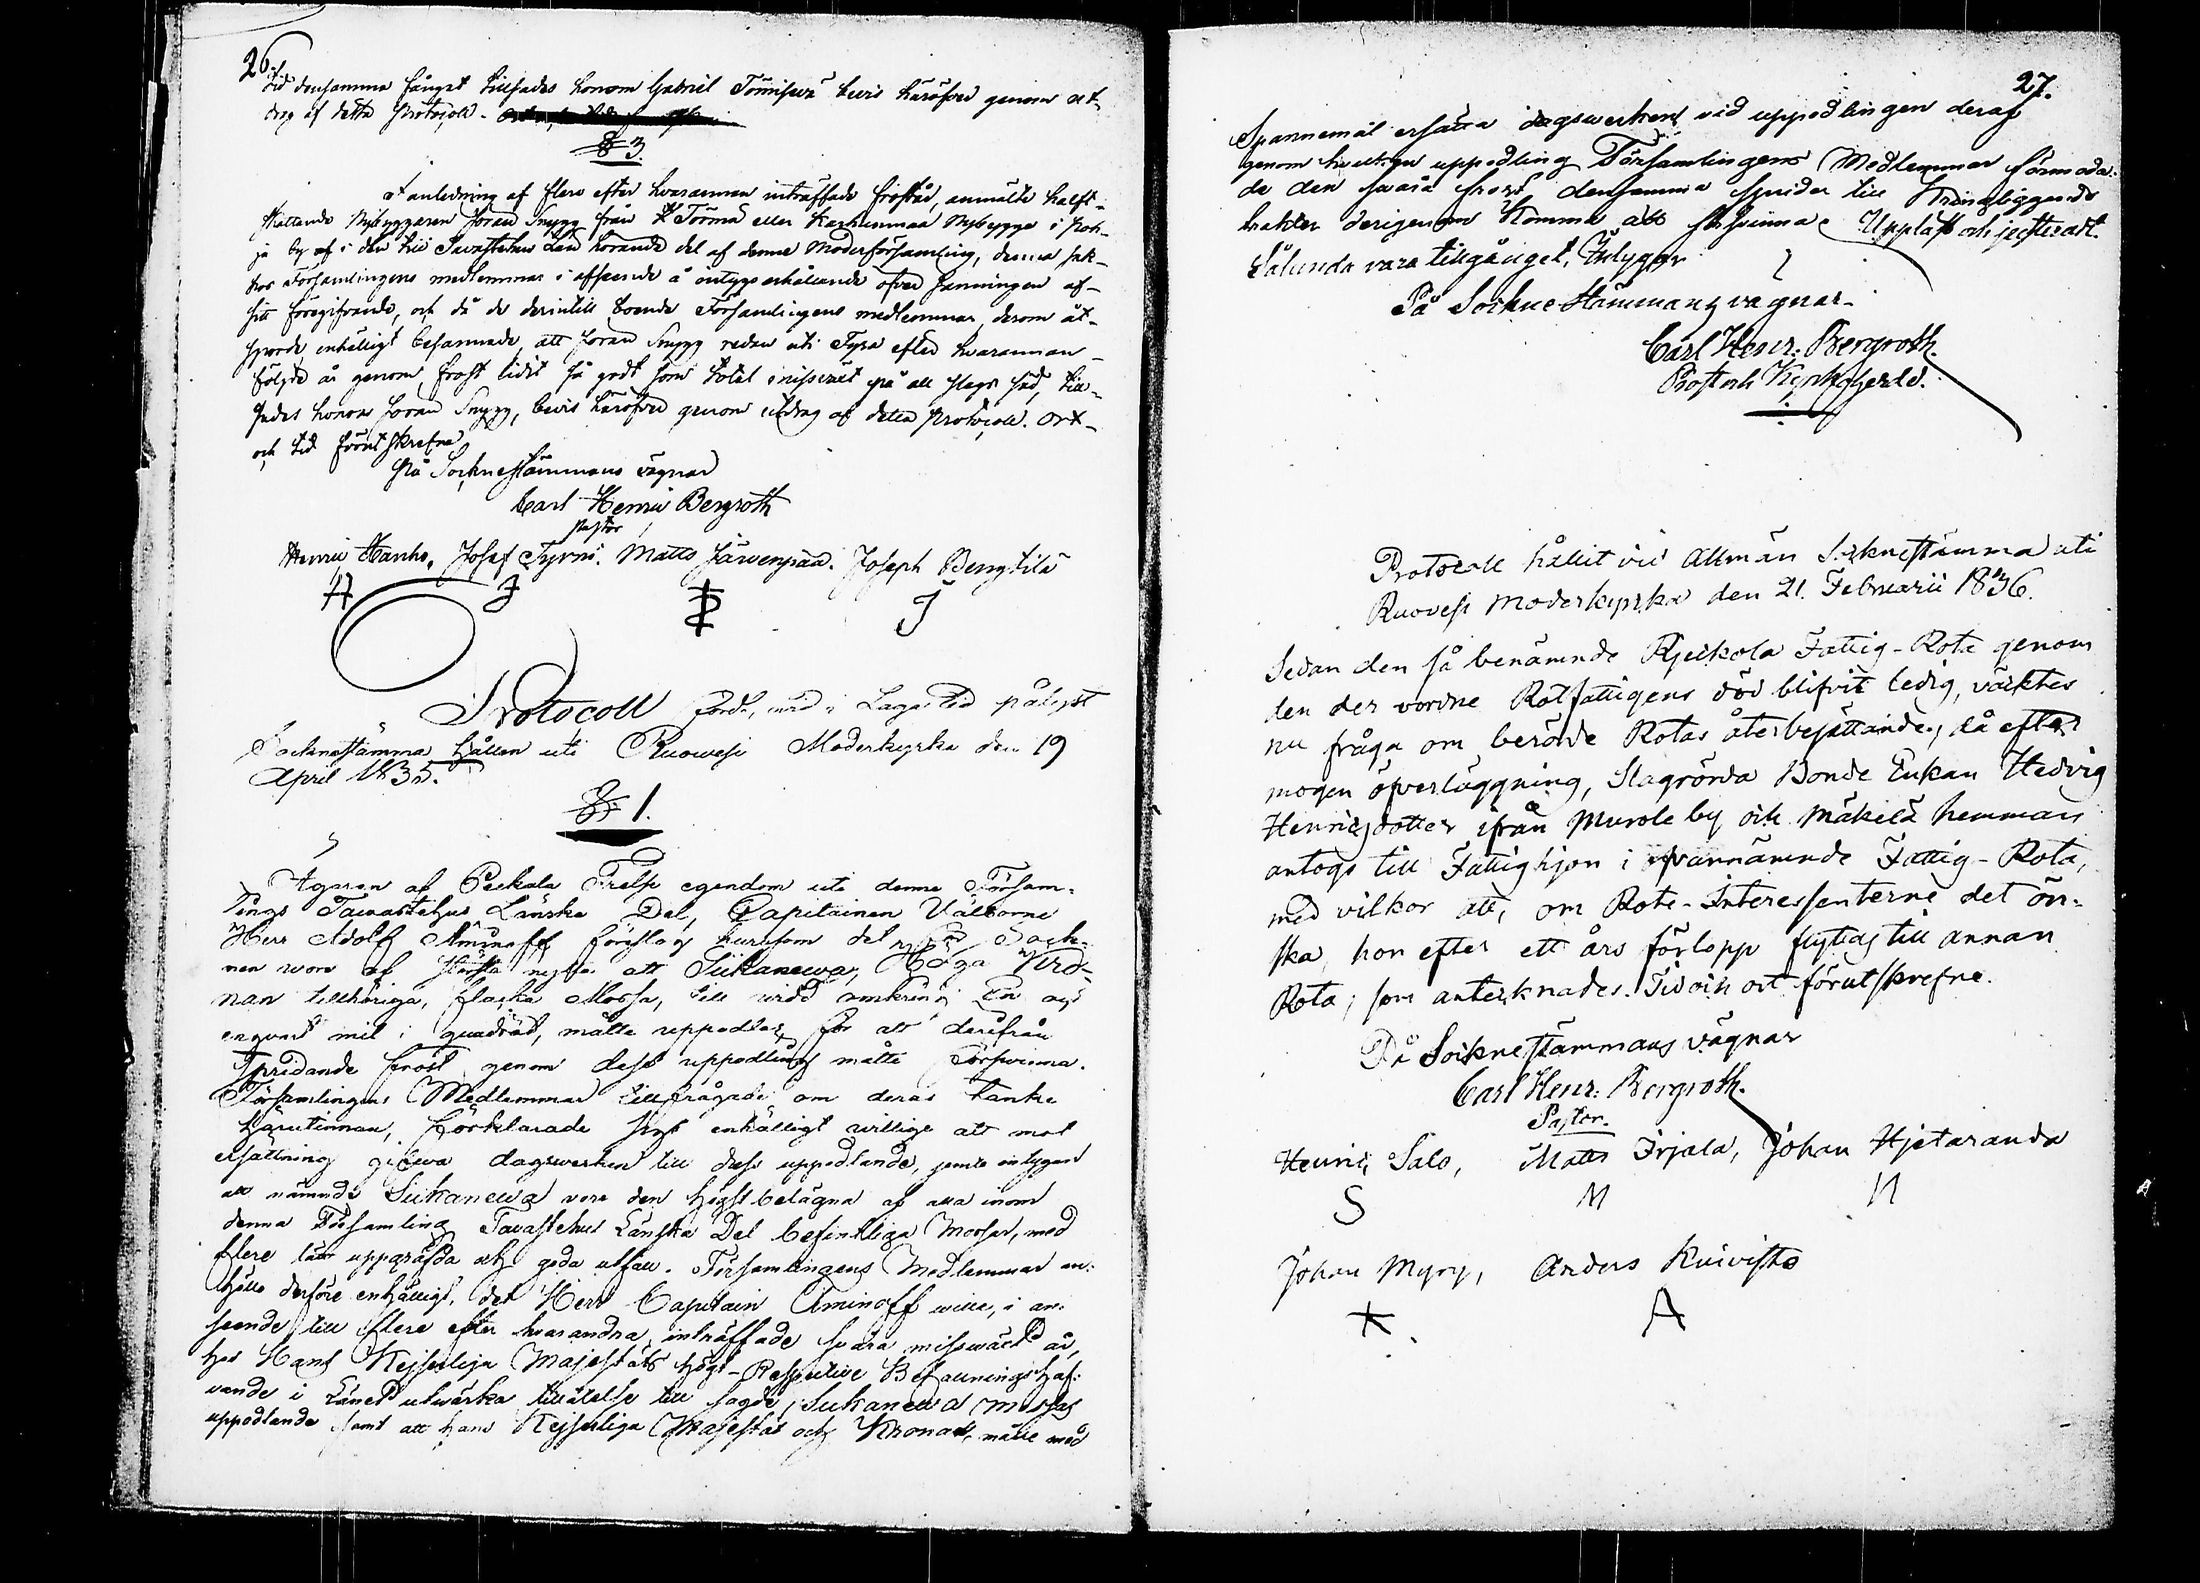 26.
tid densamma fångat tillsades honom Gabriel Tönnisvä bevis häröfver genom ut-
drag af detta Protocoll.
§ 3.
I anledning af flere efter hvarannan inträffade frostår, anmälte halft-
skattande Nybyggaren Joran Snygg från Törmä eller Karhunmaa Nybygge i Poh-
ja by af i den till Tavastehus Län hörande del af denne Moderförsamling, denna
hos Församlingens medlemmar i afseende å intygs erhållande öfver sanningen af
sitt föregifvande, och då de derintill boende Församlingens medlemmar derom åt-
sporde enhälligt besannade, att Joran Snygg redan uti Fyra efter hvarannan
följde år genom frost lidit så godt som total missväxt på all slags säd, till-
sades honom Joran Snygg, bevis häröfver genom utdrag af detta Protocoll. Ort
och tid förut skrefne
På Sockne Stämmans vägnar
Carl Henric Bergroth
Pastor
Henric Hanho, Josef Tyrni. Matts Järvenpää. Joseph Bengtilä
H J P J
Protocoll förde, vid i Laga tid pålyst
Socknestämma hållen uti Ruovesi Moderkyrka den 19
April 1835.
§ 1.
Ägaren af Pekala Frelse egendom uti denne Försam-
lings Tavastehus Länska Del, Capitainen Välborne
Herr Adolf Aminoff föreslog hurusom det för Sock-
nen vore af största nytta att Sukanewa, Höga Kro-
nan tillhöriga, flacka Mossa, till vidd omkring En och
en qvart mil i quadrat, måtte uppodlas, för att derifrån
Spridande frost genom dess uppodling måtte försvinna.
Församlingens Medlemmar tillfrågade om deras tanke
härutinnan, förklarade sig enhälligt villige att mot
ersättning gifva dagsverken till dess uppodlande, jemte intygan
att nämnde Sukanewa vore den högst belägna af alla inom
denna Församling Tavastehus Länska Del befintliga Mossar, med
flere lätt uppgräfda och goda utfall. Församlingens Medlemmar an-
höllo derföre enhälligt, det Herr Capitain Aminoff ville, i an-
seende till flere efter hvarandra inträffade svåra missväxt år,
hos Hans Kejserliga Majestäts Högt-Respective Befallningshaf-
vande i Länet utvärka tillåtelse till sagde Sukanewa Mossas
uppodlande samt att Hans Kejserliga Majestät och Kronan, måtte med
27.
Spannemål ersätta dagsverken vid uppodlingen deraf
genom hvilken uppodling Församlingens Medlemmar förmoda-
de den svåra frost, densamma sprider till kringliggande
trakter derigenom komma att försvinna. Uppläst och justeradt.
Sålunda vara tillgånget, Intygar
På Sockne Stämmans vägnar
Carl Henr: Bergroth.
Prost och Kyrkoherde.
Protocoll hållit vid Allmän Socknestämma uti
Ruovesi Moderkyrka den 21. Februarii 1836.
Sedan den så benämnde Pjeikola Fattig-Rota genom
den der vordne Rotfattigens död blifvit ledig, väcktes
nu fråga om berörde Rotas återbesättande, då efter
mogen öfverläggning, Slagrörda Bonde Enkan Hedvig
Henricsdotter ifrån Murole by och Mäkelä hemman
antogs till Fattighjon i ofvannämnde Fattig-Rota,
med vilkor att, om Rote-Interessenterne det ön-
ska, hon efter ett års förlopp flyttas till annan
Rota; som antecknades. Tid och ort förutskrefne.
På Socknestämmans vägnar
Carl Henr: Bergroth.
Pastor.
Henric Salo, Matts Irjala, Johan Hjetaranda
S M H
Johan Myry, Anders Kuivisto
X A